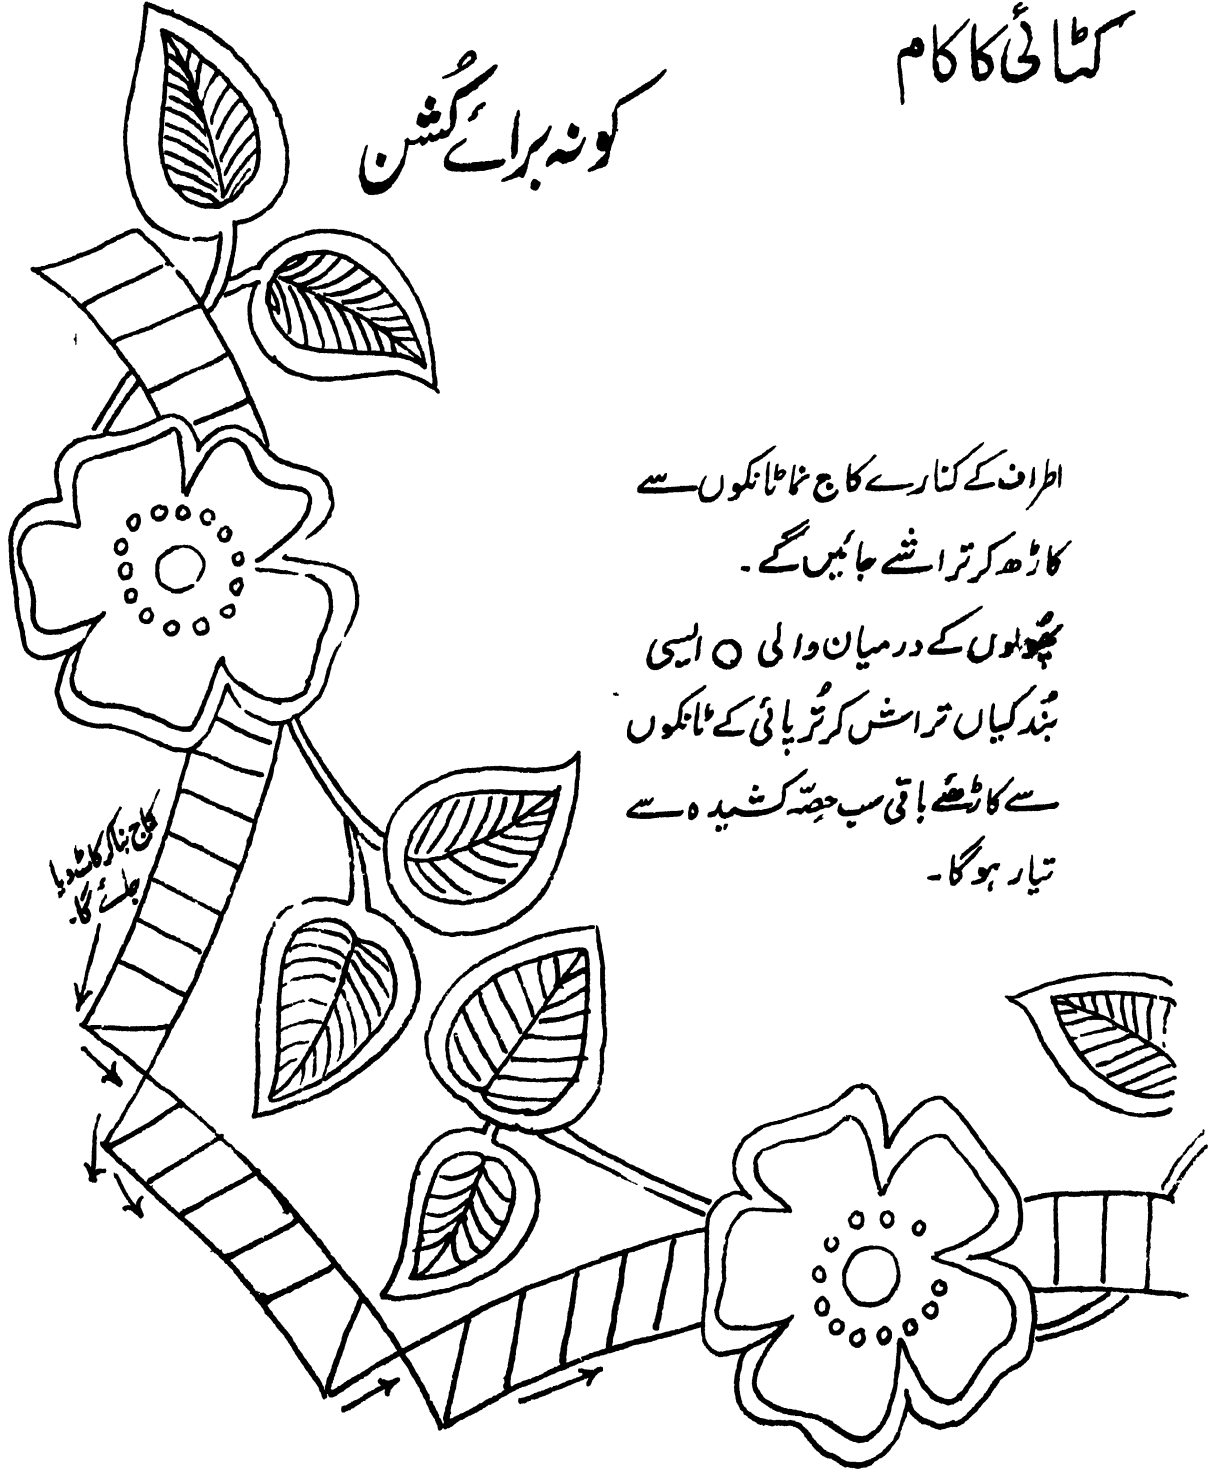 کٹائی کا کام
کونہ برائے کُشن
اطراف کے کنارے کاج نما ٹانکوں سے
کاڑھ کر تراشے جائیں گے۔
پھُولوں کے درمیان والی O ایسی
بُندکیاں تراش کر تُرپائی کے ٹانکوں
سے کاڑھئے باقی سب حِصّہ کشیدہ سے
تیار ہو گا۔
کاج بنا کر کاٹ دیا
جائے گا۔